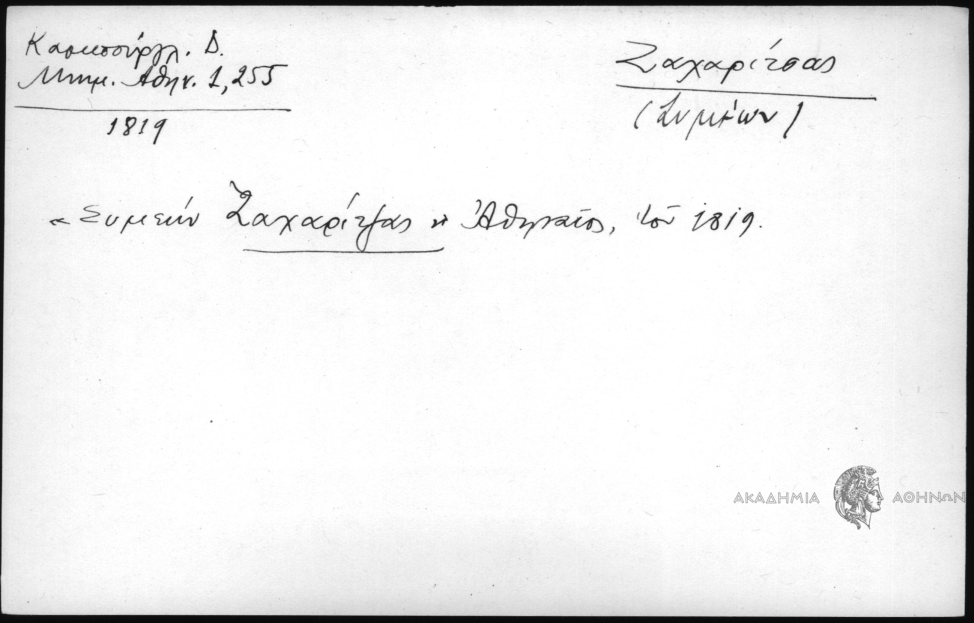 Καμπούργλ. Δ.
Μνημ. Αθην. 1, 255
1819
Ζαχαρίτσας
(Συμεών)
"Συμεών Ζαχαρίτζας" Ἀθηναῖος, τοῦ 1819.
ΑΚΑΔΗΜΙΑ ΑΘΗΝΩΝ